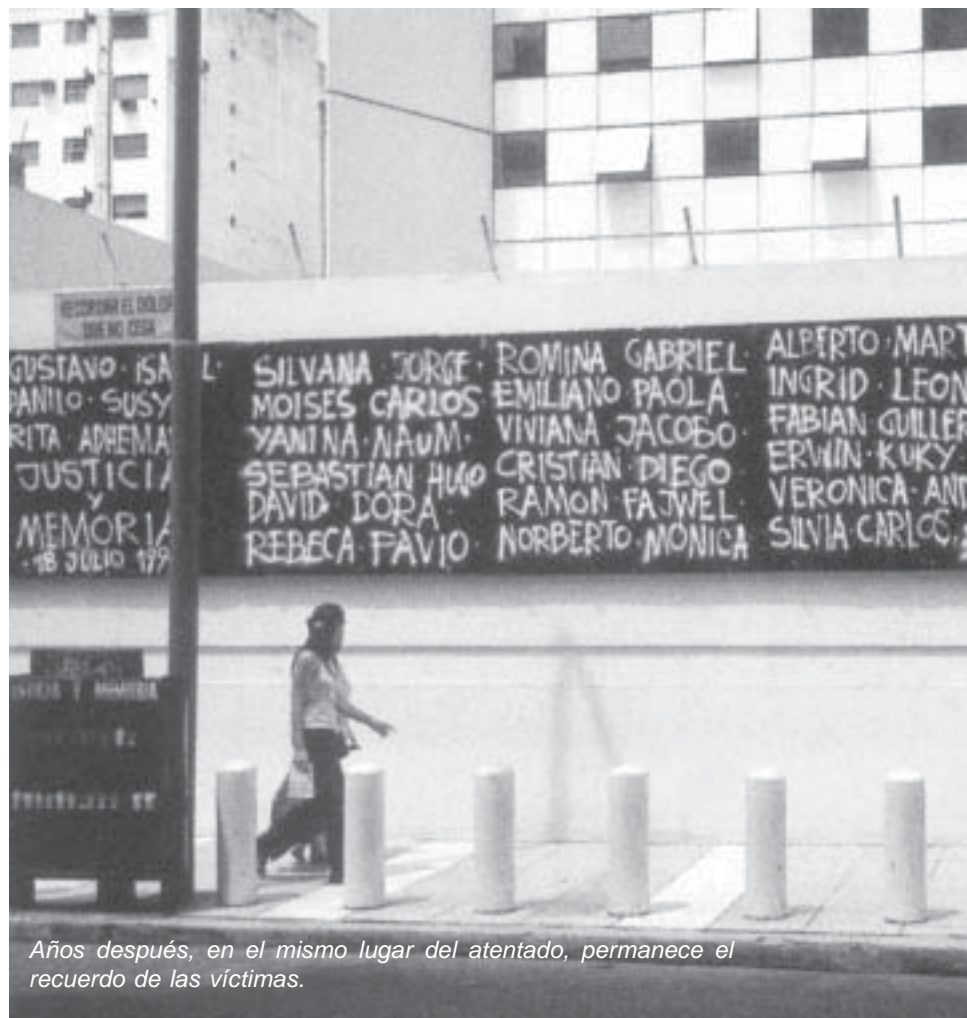 RECORDAR EL DOLOR
QUE NO CESA
GUSTAVO · ISA L ·
DANILO · SUSY
RITA ADHEMA
JUSTICIA
Y
MEMORIA
· 18 JULIO 199
SILVANA JORGE ·
MOISES CARLOS
YANINA · NAUM ·
SEBASTIAN HUGO
DAVID DORA ·
REBECA · FAVIO ·
ROMINA GABRIEL ·
EMILIANO PAOLA
VIVIANA JACOBO ·
CRISTIAN · DIEGO
RAMON · FAJWEL ·
NORBERTO · MONICA
ALBERTO · MART
INGRID · LEON
FABIAN GUILLER
ERWIN · KUKY ·
VERONICA · AND
SILVIA CARLOS,
JUSTICIA Y MEMORIA
Años después, en el mismo lugar del atentado, permanece el
recuerdo de las víctimas.